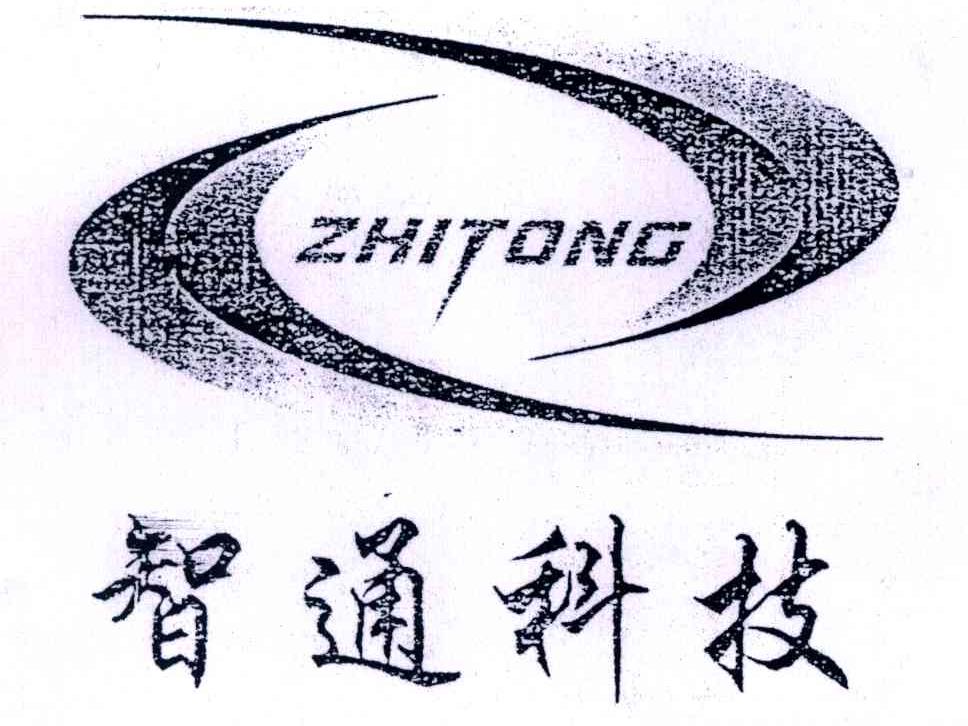 ZHITONG
智通科技